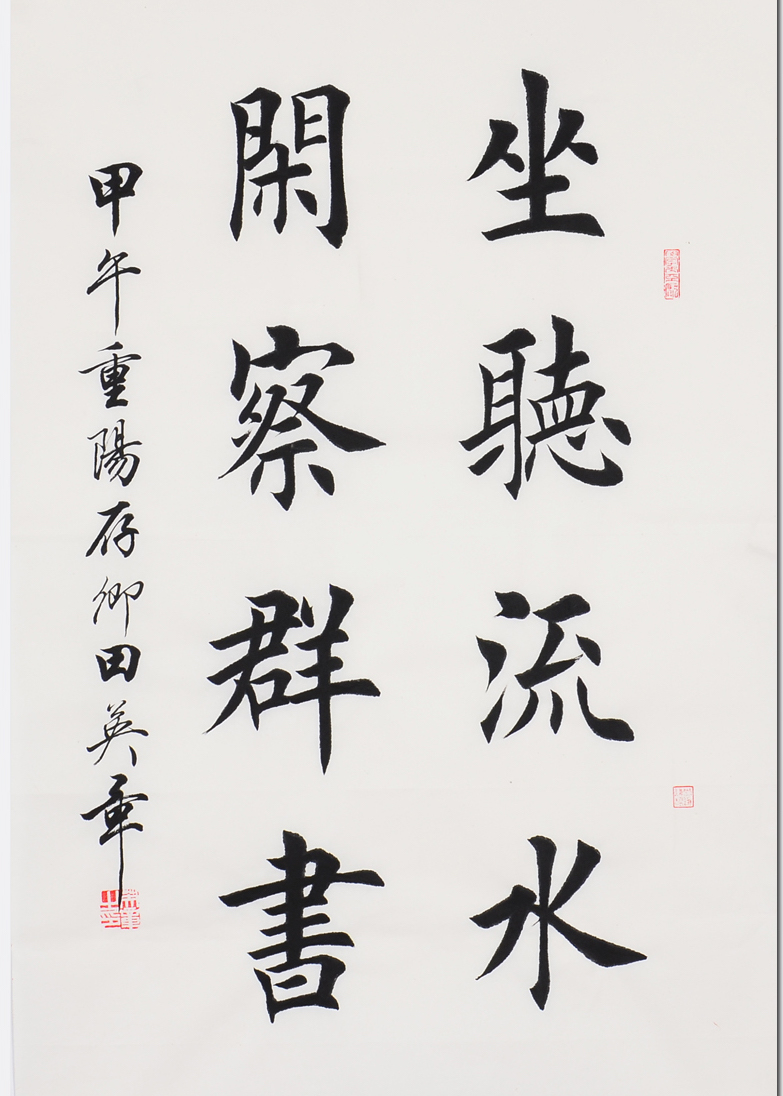 坐聽流水
閑察群書
甲午重陽存卿田英章